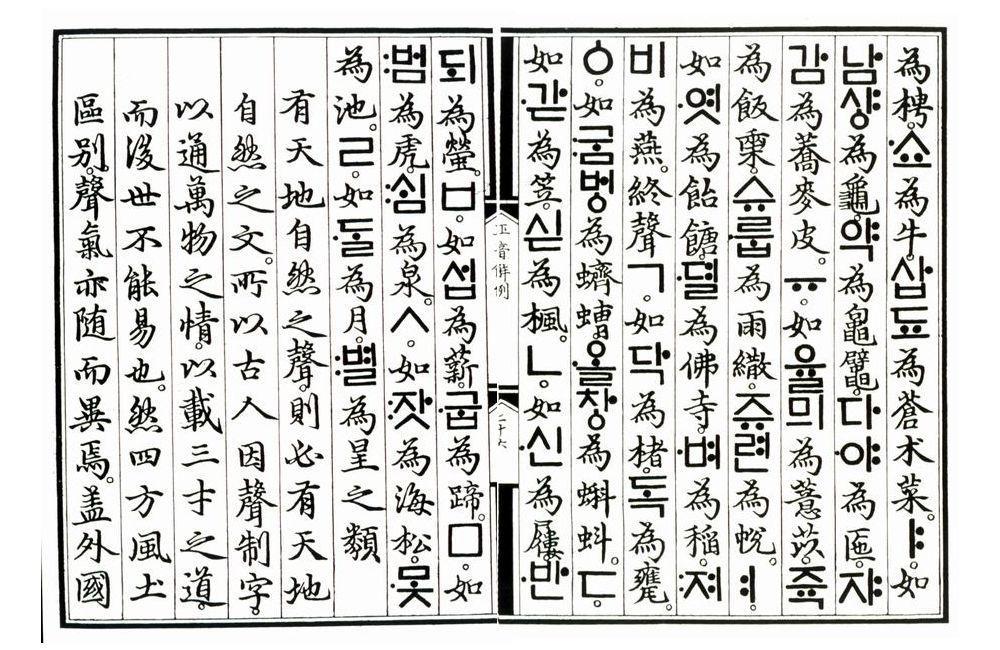 為梬。쇼為牛。삽됴為蒼朮菜。ㅑ。如
남샹為龜。약為𪓟鼊。다야為匜。쟈
감為蕎麥皮。ㅠ。如율믜為薏苡。쥭
為飯𣖄。슈룹為雨繖。쥬련為帨。ㅕ。
如·엿為飴餹。뎔為佛寺。·벼為稻。:져
비為燕。終聲ㄱ。如닥為楮。독為甕。
ㆁ。如:굼벙為蠐螬。·올창為蝌蚪。ㄷ。
如·갇為笠。싣為楓。ㄴ。如·신為屨。·반
正音解例
二十六
되為螢。ㅂ。如섭為薪。·굽為蹄。ㅁ。如
:범為虎。:심為泉。ㅅ。如:잣為海松。·못
為池。ㄹ。如·ᄃᆞᆯ為月。:별為星之類
有天地自然之聲。則必有天地
自然之文。所以古人因聲制字。
以通萬物之情。以載三才之道。
而後世不能易也。然四方風土
區別。聲氣亦随而異焉。盖外國